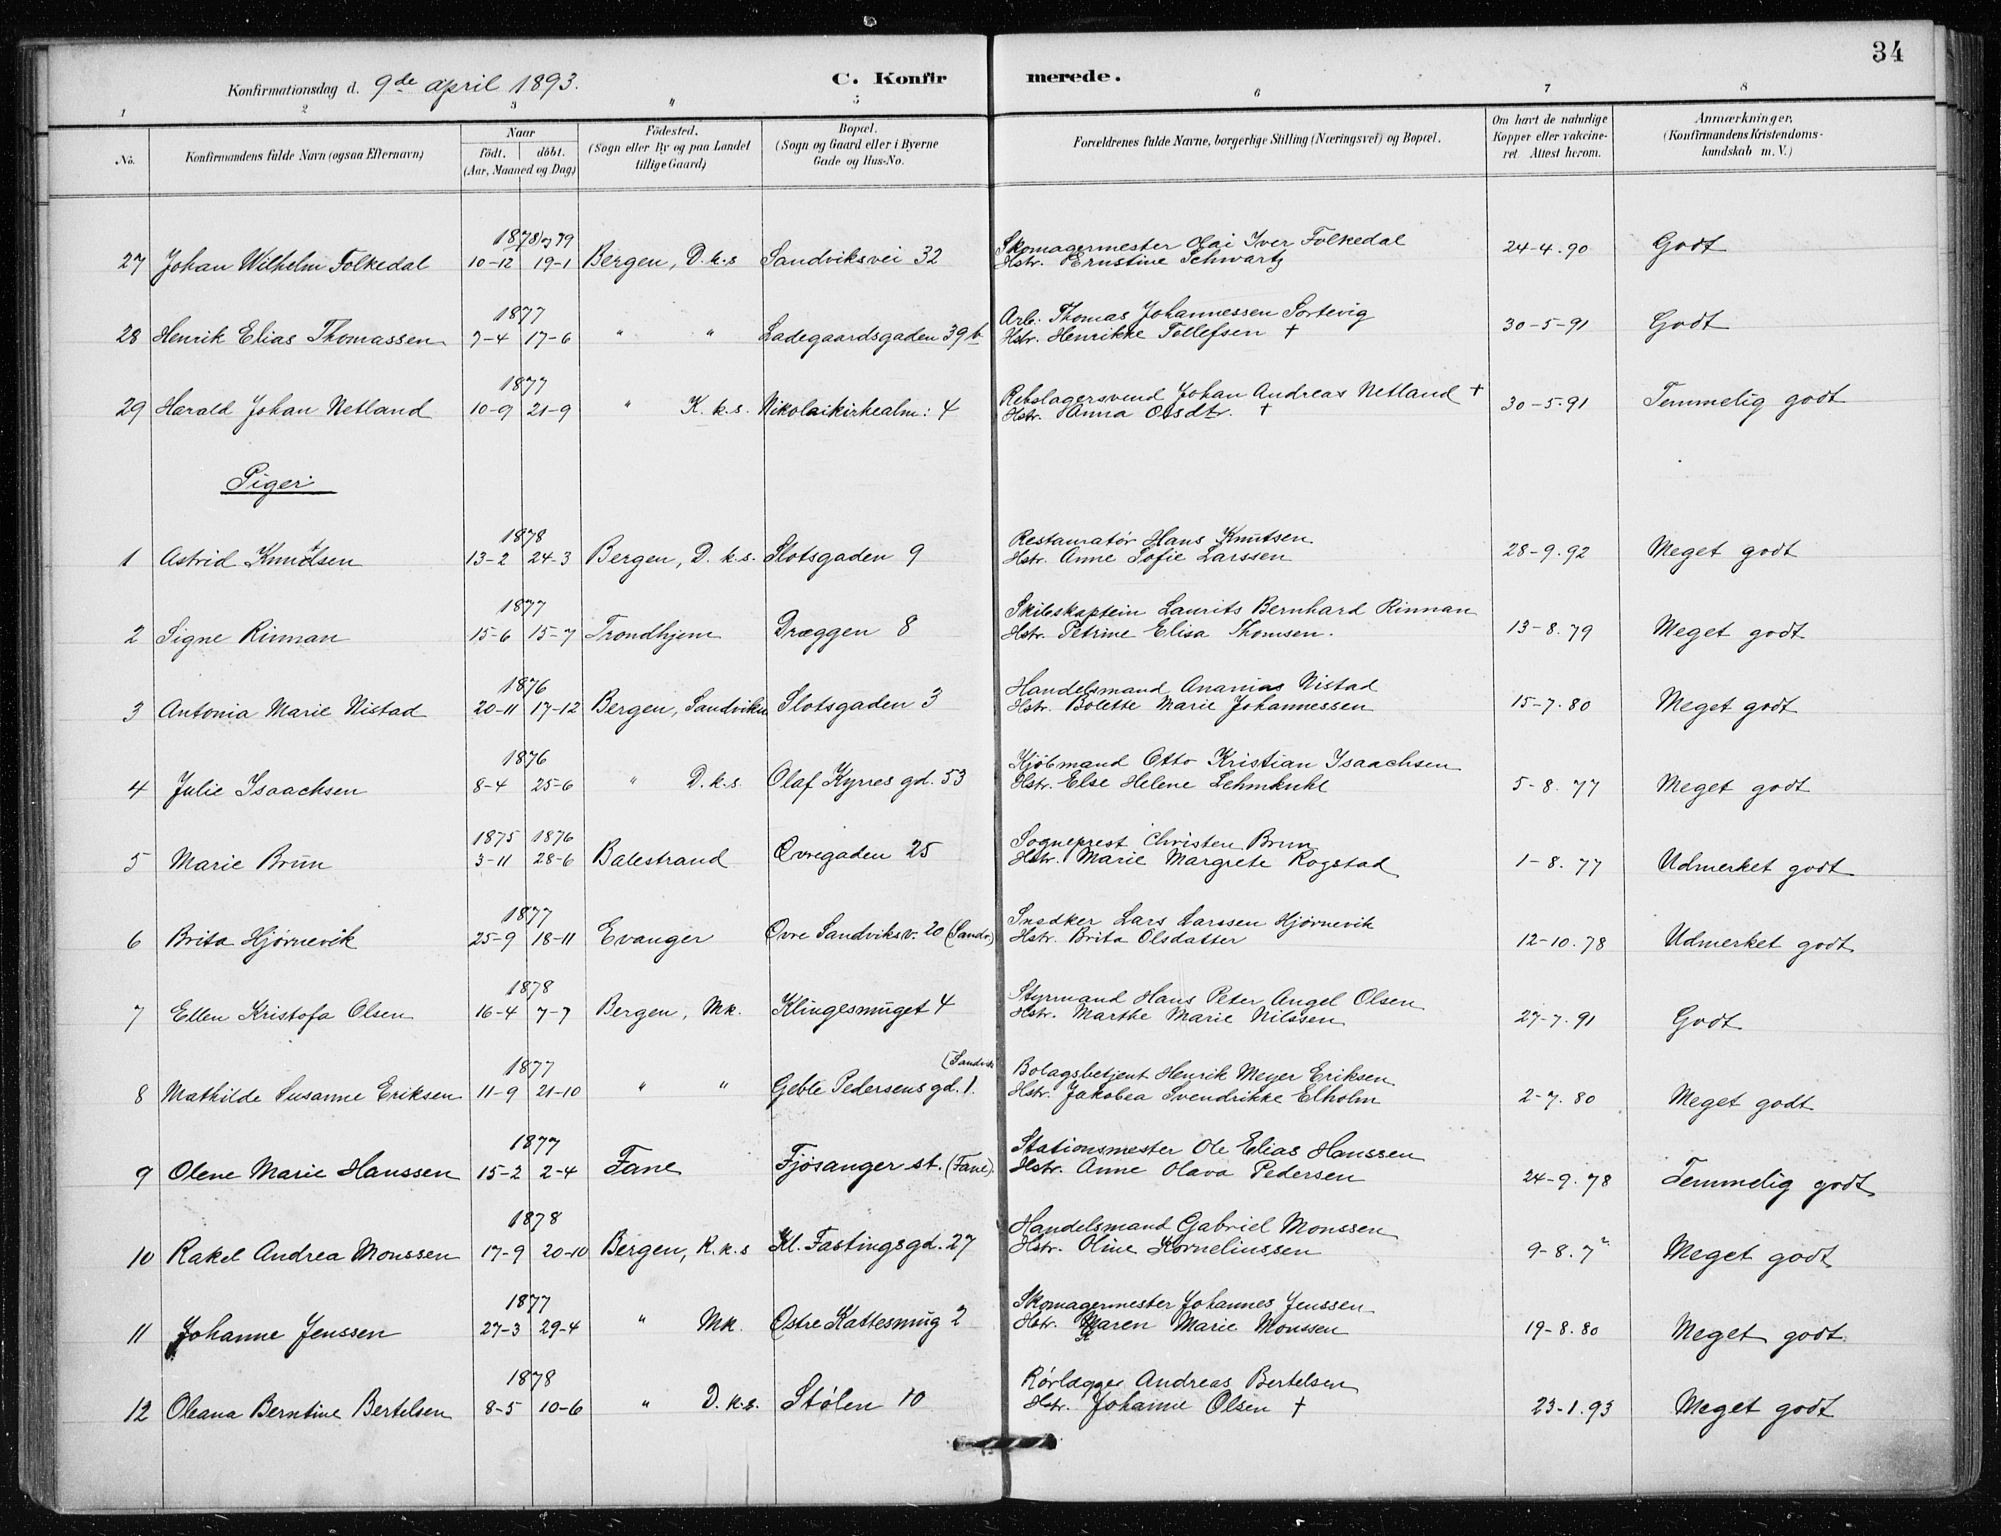 34
Konfirmationsdag d. 9de april 1893. C. Konfirmerede.
1 2 3 " 5 6 7 8
No. Konfirmandens fulde Navn (ogsaa Efternavn) Naar Födt. döbt. (Aar, Maaned og Dag) Födested. (Sogn eller By og paa Landet tillige Gaard) Bopæl. (Sogn og Gaard eller i Byerne Gade og Hus-No. Forældrenes fulde Navne, borgerlige Stilling (Næringsvei) og Bopæl. Om havt de naturlige Kopper eller vakcineret Attest herom. Anmærkninger. (Konfirmandens Kristendomskundskab m. V.)
1878 og 79
27 Johan Wilhelm Folkedal 10-12 19-1 Bergen, D.k.s Sandviksvei 32 Skomagermester Olai Iver Folkedal 24-4.90 Godt
Hstr. Ernstine Schwartz
1877
28 Henrik Elias Thomassen 7-4 17-6 " " Ladegaardsgaden 39b Arb. Thomas Johannessen Sortevig 30-5-91 Godt
Hstr. Henrikke Tollefsen †
1877
29 Harald Johan Netland 10-9 21-9 " K.k.s. Nikolaikirkealm: 4 Rebslagersvend Johan Andreas Netland † 30-5.91 Temmelig godt
Hstr. Anna Olsdtr. †
Piger
1878
1 Astrid Knutsen 13-2 24-3 Bergen, D.k.s. Slotsgaden 9 Restauratør Hans Knutsen 28-9.92 Meget godt
Hstr. Anne Sofie Larssen
1877
2 Signe Rinnan 15-6 15-7 Trondhjem Dræggen 8 Skibskaptein Laurits Bernhard Rinnan 13-8.79 Meget godt
Hstr. Petrine Elisa Thomsen.
1876
3 Antonia Marie Nistad 20-11 17-12 Bergen, Sandviken Slotsgaden 3 Handelsmand Ananias Nistad 15-7.80 Meget godt
Hstr. Bolette Marie Johannessen
1876
4 Julie Isaachsen 8-4 25-6 " D.k.s. Olaf Kyrres gd. 53 Kjøbmand Otto Kristian Isaachsen 5-8.77 Meget godt
Hstr. Else Helene Lehmkuhl
1875 1876
5 Marie Brun 3-11 28-6 Balestrand Øvregaden 25 Sogneprest Christen Brun 1-8.77 Udmerket godt
Hstr. Marie Margrete Rogstad
1877
6 Brita Hjørnevik 25-9 18-11 Evanger Øvre Sandviksv. 20 (Sandv.) Snedker Lars Larssen Hjørnevik 12-10.78 Udmerket godt
Hstr. Brita Olsdatter
1878
7 Ellen Kristofa Olsen 16-4 7-7 Bergen, Mk. Klingesmuget 4 Styrmand Hans Peter Angel Olsen 27-7.91 Godt
Hstr. Marthe Marie Nilssen
1877 (Sandvik
8 Mathilde Susanne Eriksen 11-9 21-10 " " Geble Pedersens gd. 1. Bolagsbetjent Henrik Meyer Eriksen 2-7.80 Meget godt
Hstr. Jakobea Svendrikke Elholm
1877
9 Olene Marie Hanssen 15-2 2-4 Fane Fjøsanger st. (Fane) Stationsmester Ole Elias Hanssen 24-9.78 Temmelig godt
Hstr. Anne Olava Pedersen
1878
10 Rakel Andrea Monssen 17-9 20-10 Bergen, K.k.s Kl. Fastings gd. 27 Handelsmand Gabriel Monssen 9-8. Meget godt
Hstr. Oline Korneliussen
1877
11 Johanne Jenssen 27-3 29-4 " Mk. Østre Kattesmug 2 Skomagermester Johannes Jenssen 19-8.80 Meget godt.
Hstr. Karen Marie Monssen
1878
12 Oleana Berntine Bertelsen 8-5 10-6 " D.k.s. Stølen 10 Rørlægger Andreas Bertelsen 23-1.93 Meget godt
Hstr. Johanne Olsen †